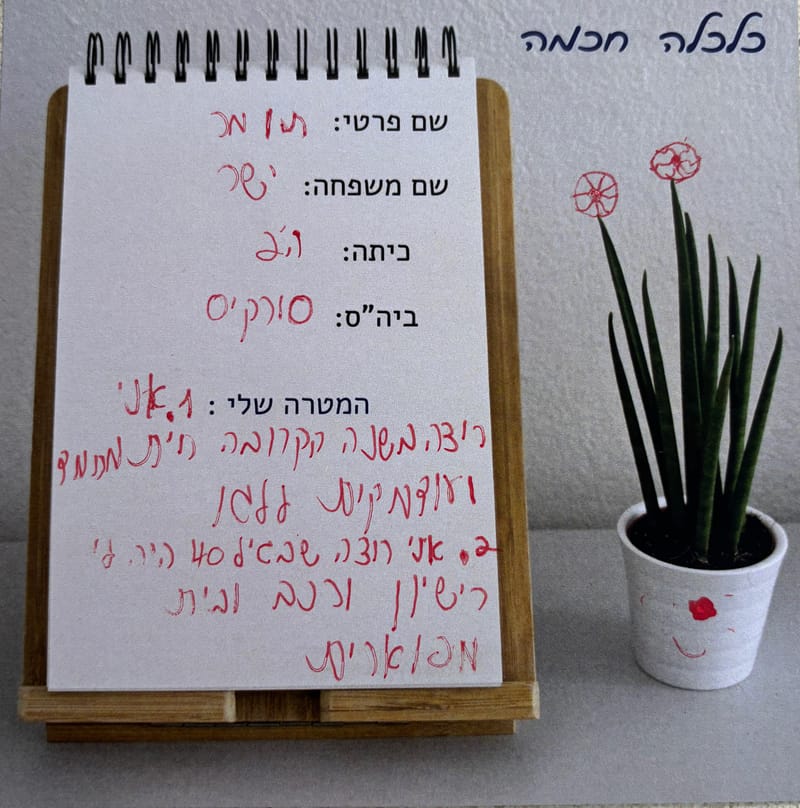 כלכלה חכמה
שם פרטי: תומר
שם משפחה: ישר
כיתה: ה'2
ביה"ס: סורקיס
המטרה שלי : 1. אני
רוצה בשנה הקרובה חית מחמד
ועוד חקית ללגו
2. אני רוצה שבגיל 40 היה לי
רישיון ורכב ובית
מפוארית